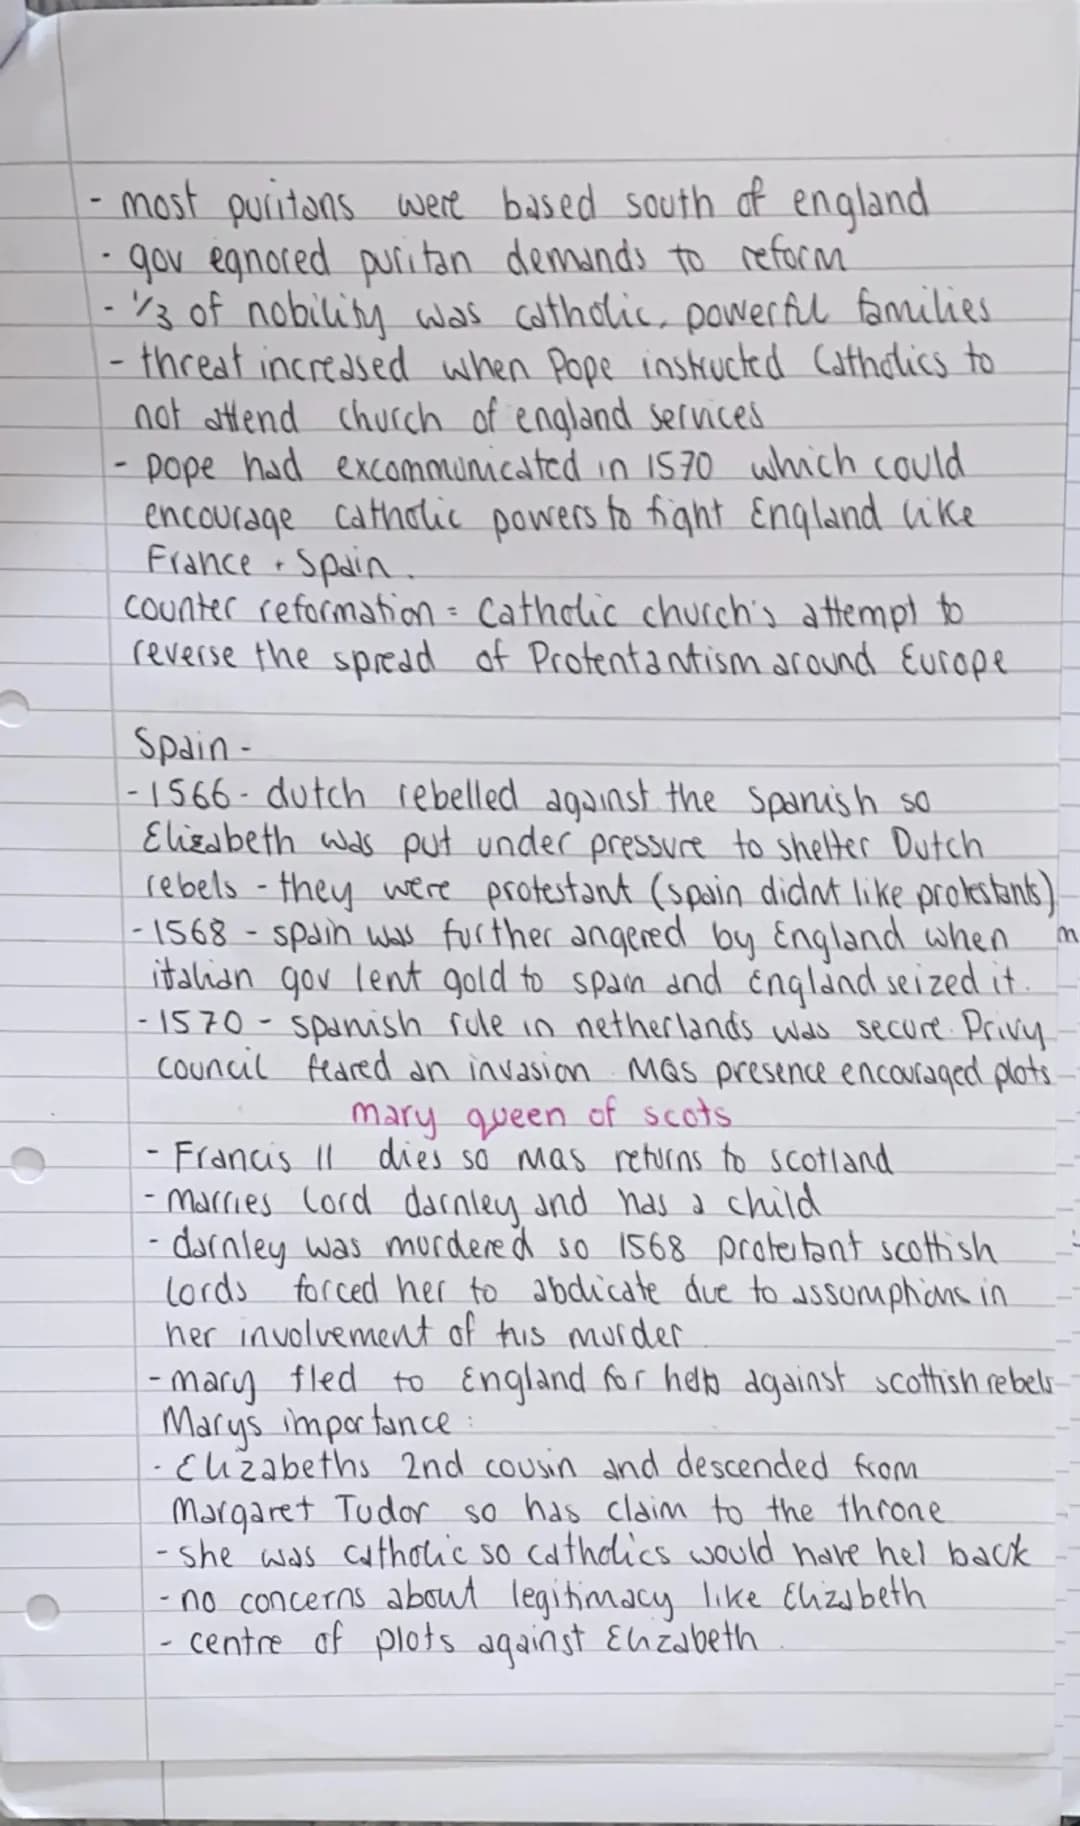 - most puritans were based south of england
- gov egnored puritan demands to reform
- 1/3 of nobility was catholic, powerful families
- threat increased when Pope instructed Catholics to
not attend church of england services
- pope had excommunicated in 1570 which could
encourage catholic powers to fight England like
France + Spain.
counter reformation = Catholic church's attempt to
reverse the spread of Protentantism around Europe
Spain -
- 1566 - dutch rebelled against the Spanish so
Elizabeth was put under pressure to shelter Dutch
rebels - they were protestant (spain didnt like protestants)
- 1568 - spain was further angered by England when
italian gov lent gold to spain and England seized it.
- 1570 - spanish rule in netherlands was secure. Privy
council feared an invasion. MQS presence encouraged plots
mary queen of scots
- Francis II dies so mqs returns to scotland
- marries lord darnley and has a child
- darnley was murdered so 1568 protestant scottish
lords forced her to abdicate due to assumptions in
her involvement of his murder
- mary fled to England for help against scottish rebels
Marys importance :
- Elizabeths 2nd cousin and descended from
Margaret Tudor so has claim to the throne
- she was catholic so catholics would have her back
- no concerns about legitimacy like Elizabeth
- centre of plots against Elizabeth.